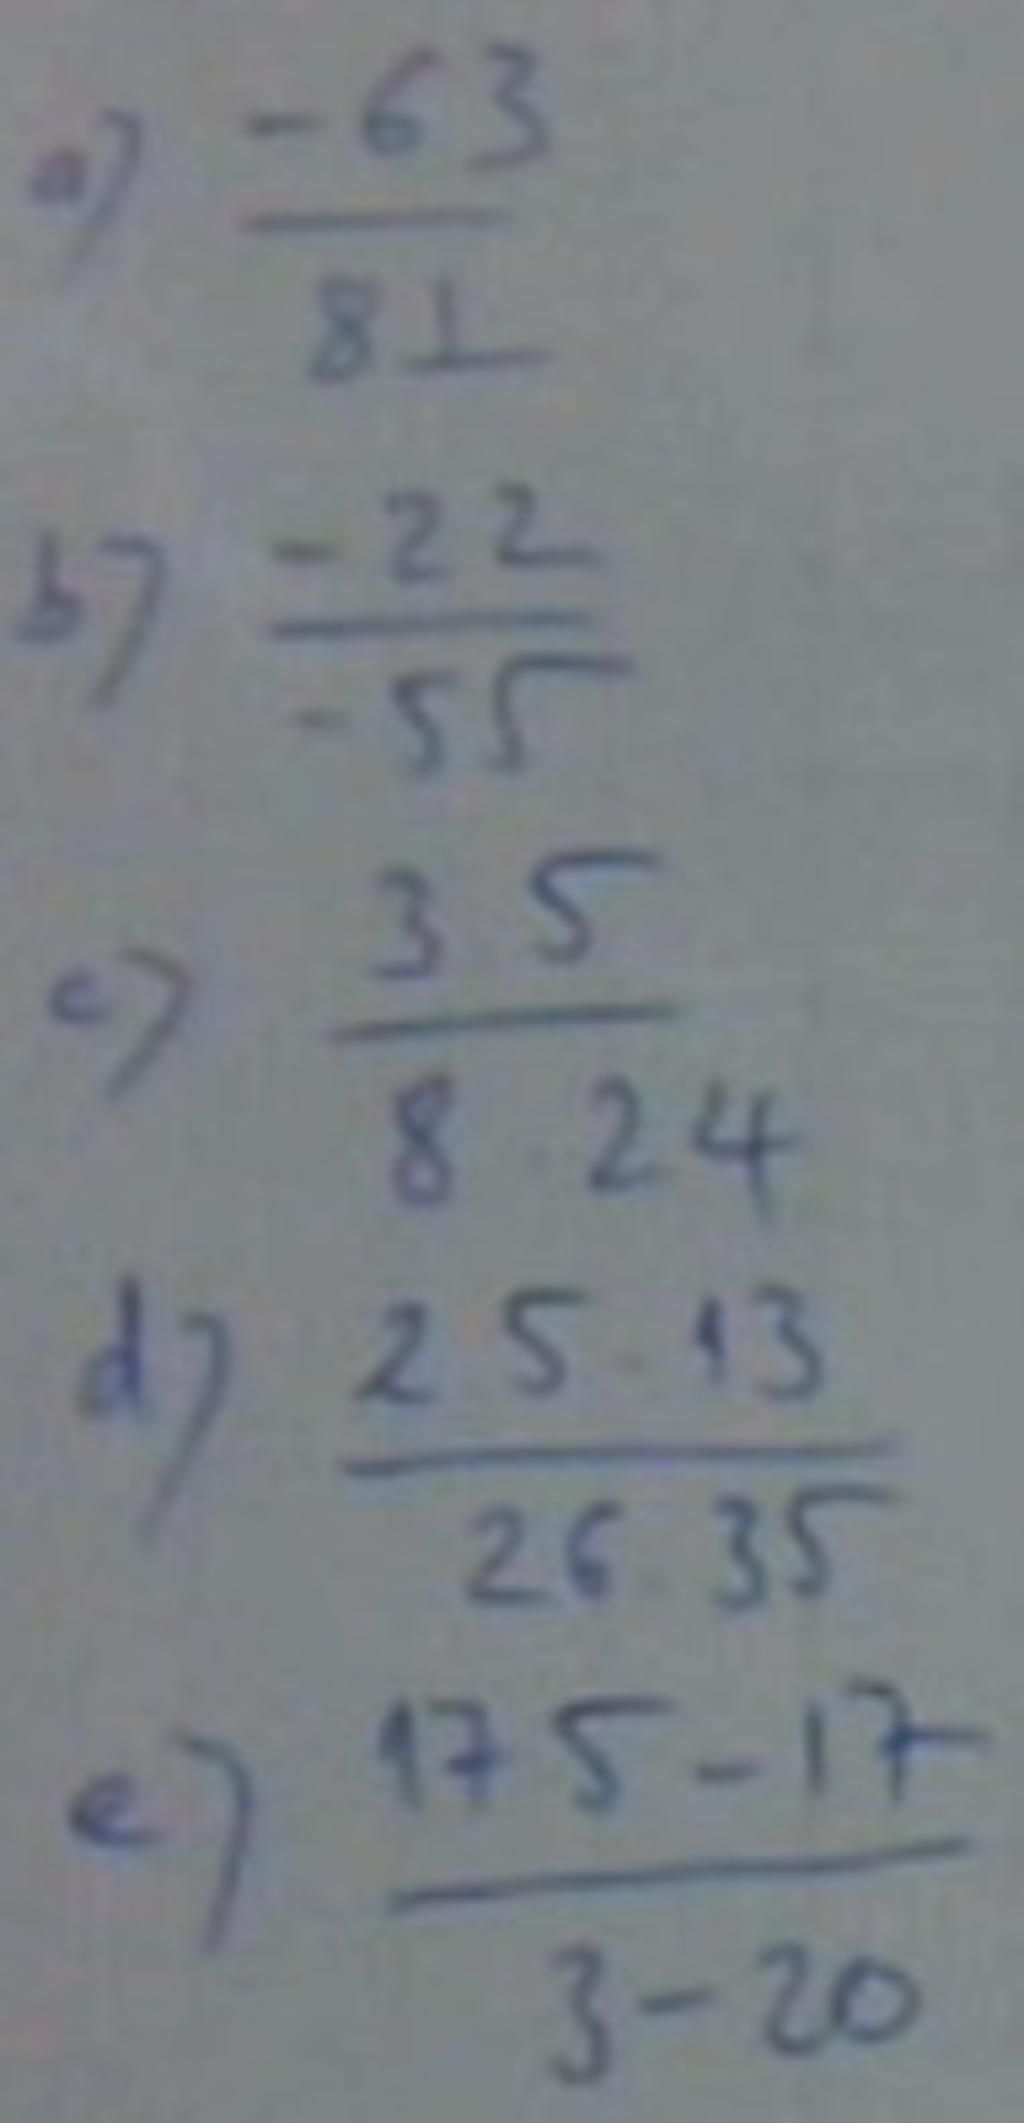 a) -63
81
b) -22
-55
c) 3 5
8 . 24
d) 2 5 . 13
26 . 35
e) 17 5 - 17
3 - 20